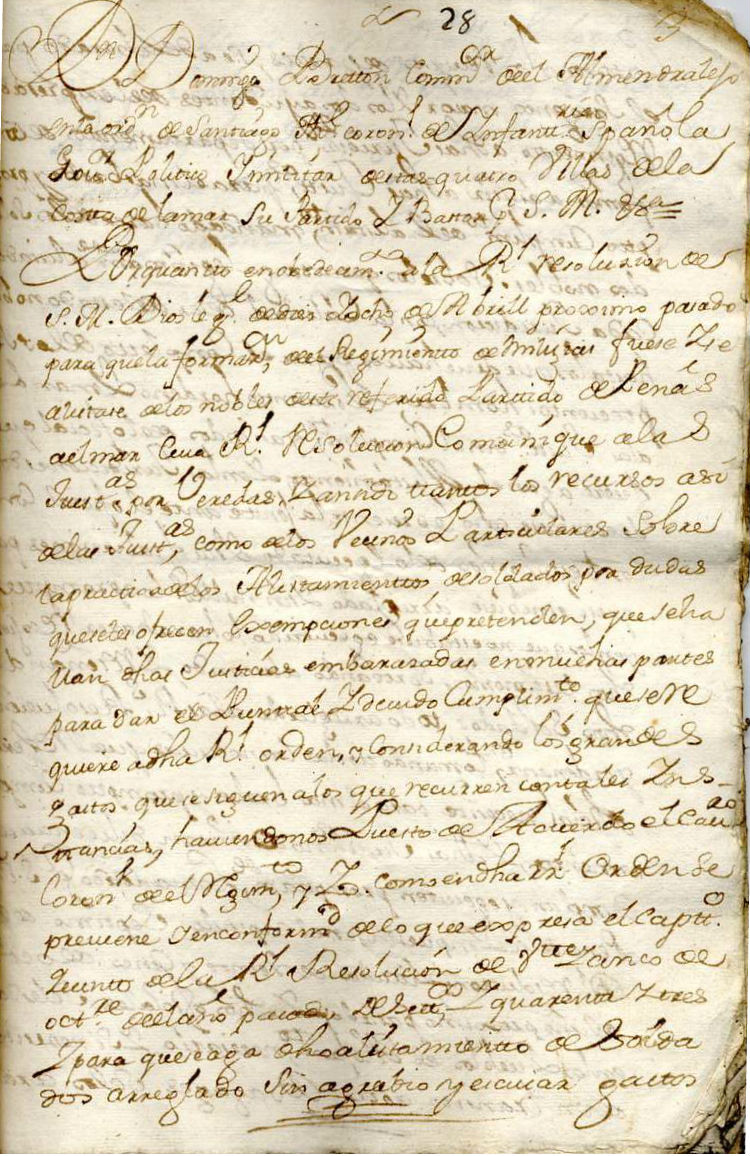 28
Dn Domingo Bretton Commor del Almendralejo
en la ordn de Santiago Thte coronl de Infantria española
Govr Politico y militar destas quatro Villas de la
Costa de la mar Su Partido y Baston por S. M. &a
Por quanto en obedecimto a la Rl resoluzion de
S. M. Dios le ge de diez y ocho de Abrill proximo pasado
para que la formazn del Regimiento de Milizias fuese y se
alistase de los nobles deste referido Partido de Penas
al mar Cuia Rl Resolucion Comunique a las
Justas por Veredas, y an sido tantos los recursos asi
de las Justas, como de los Vecinos Particulares Sobre
la practica de los Alistamienttos de soldados por dudas
que seles ofrecen Exempciones que pretenden, que se ha
llan dhas Justicias embarazadas en muchas partes
para dar el Puntual y devido Cumplimto que se re
quiere a dha Rl orden, y Considerando los grandes
gastos que se siguen a los que recurren con tales Yns-
tancias, haviendonos Puesto de Acuerdo el Cavro
Coronl de el Regimto, y Yo. como en dha Rl Orden se
previene y en conformd de lo que expresa el Capto
quinto de la Rl Resolución de Vtte y cinco de
octre del año pasado de Settos y quarenta y tres
y para que se aga dho alistamientto de Solda
dos arreglado Sin agrabio y escusar gastos